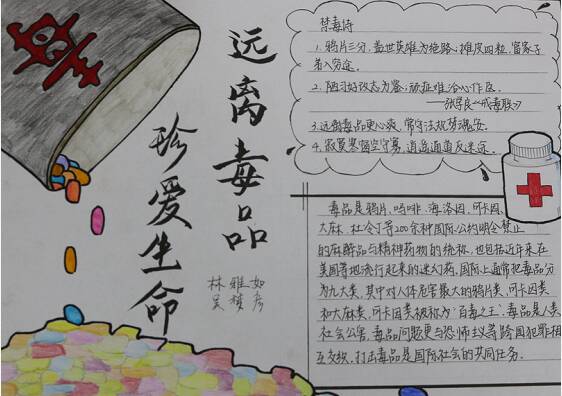 毒
远离毒品
珍爱生命
林雅如
吴樱彦
禁毒诗
1.鸦片三分,盖世英雄为绝路;摊皮四粒,富家子
弟入穷途。
2.陋习好改志为鉴,顽症难治心作医。
——张学良《戒毒联》
3.远衙毒品更心爽,常守法规梦魂安。
毒品是鸦片、吗啡、海洛因、可卡因、
大麻、杜冷丁等200余种国际公约明令禁止
的麻醉品与精神药物的统称,也包括近年来在
美国等地流行起来的迷幻药。国际上通常把毒品分
为九大类,其中对人体危害最大的鸦片类,可卡因类
和大麻类,可卡因类被称为"百毒之王"。毒品是人类
社会公害,毒品问题更与恐怖主义等跨国犯罪相
互交织,打击毒品是国际社会的共同任务。